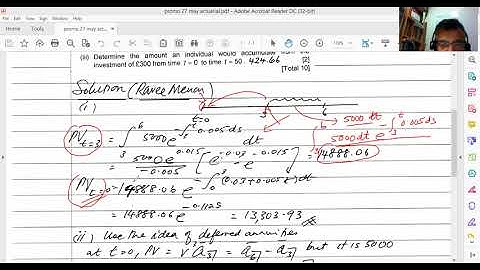 promo 27 may actuarial.pdf - Adobe Acrobat Reader DC (32-bit)
promo 27 may actuarial...
(ii) Determine the amount an individual would accumulate from the
investment of £300 from time t = 0 to time t = 50. 424.66 [2]
[Total 10]
Solution (Ravee Menon)
(i)
t=0 3 6
5000 dt
PV t=3 = ∫ 3 6 5000 e -∫ 3 t 0.005 ds dt
∫ 3 6 5000 dt e -∫ 3 t 0.005 ds
= 5000 e 0.015 / -0.005 [ e -0.03 - e -0.015 ] = 14888.06
PV t=0 = 14888.06 e -∫ 0 3 (0.03 + 0.005t) dt
= 14888.06 e -0.1125 = 13,303.93
(ii) Use the idea of deferred annuities
at t=0, PV = v 3 a 3 = a 6 - a 3 but it is 5000